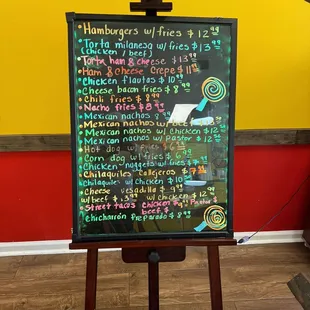 Hamburgers w/fries $12.99
Torta milanesa w/fries $13.99
(chicken / beef)
Torta ham & cheese $13.99
Ham & Cheese Crepe $11
Chicken flautas $10.99
Cheese bacon fries $8.99
Chili fries $8.99
Nacho fries $8.99
Mexican nachos $9
Mexican nachos w/
Mexican nachos w/Chicken $12.99
Mexican nachos w/Pastor $12.99
Hot dog w/fries $6
Corn dog w/fries $6.99
Chicken nuggets w/fries $
Chilaquiles Callejeros $
Chilaquiles w/Chicken $10
Cheese quesadilla $9.99
w/beef $13.99 w/Chicken $12.99
Street tacos Chicken Pastor $
beef $
Chicharrón Preparado $8.99